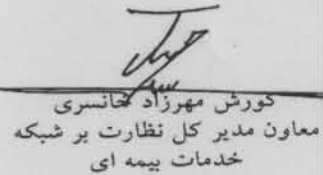 کورش مهرزاد خانسری
معاون مدیر کل نظارت بر شبکه
خدمات بیمه ای